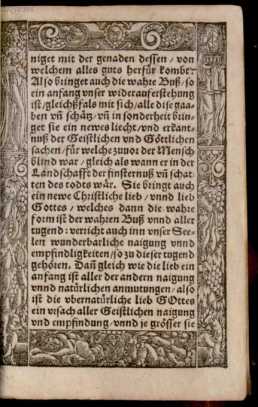 niget mit der genaden dessen / von
welchem alles guts herfür kombt.
Also bringet auch die wahre Buß / so
ein anfang vnser widerauferstehung
ist / gleichßfals mit sich / alle dise gaa-
ben vñ schätz / vñ in sonderheit brin-
get sie ein newes liecht / vnd erkant-
nuß der Geistlichen vnd Göttlichen
sachen / für welche zuuor der Mensch
blind war / gleich als wann er in der
Landschafft der finsternuß vñ schat-
ten des todts wär. Sie bringt auch
ein newe Christliche lieb / vnnd lieb
Gottes / welches dann die wahre
form ist der wahren Buß vnnd aller
tugend: vericht auch inn vnser See-
len wunderbarliche naigung vnnd
empfindligkeiten / so zu dieser tugend
gehören. Dañ gleich wie die lieb ein
anfang ist aller der andern naigung
vnnd natürlichen anmutungen / also
ist die vbernatürliche lieb GOttes
ein vrsach aller Geistlichen naigung
vnd empfindung / vnnd je grösser sie